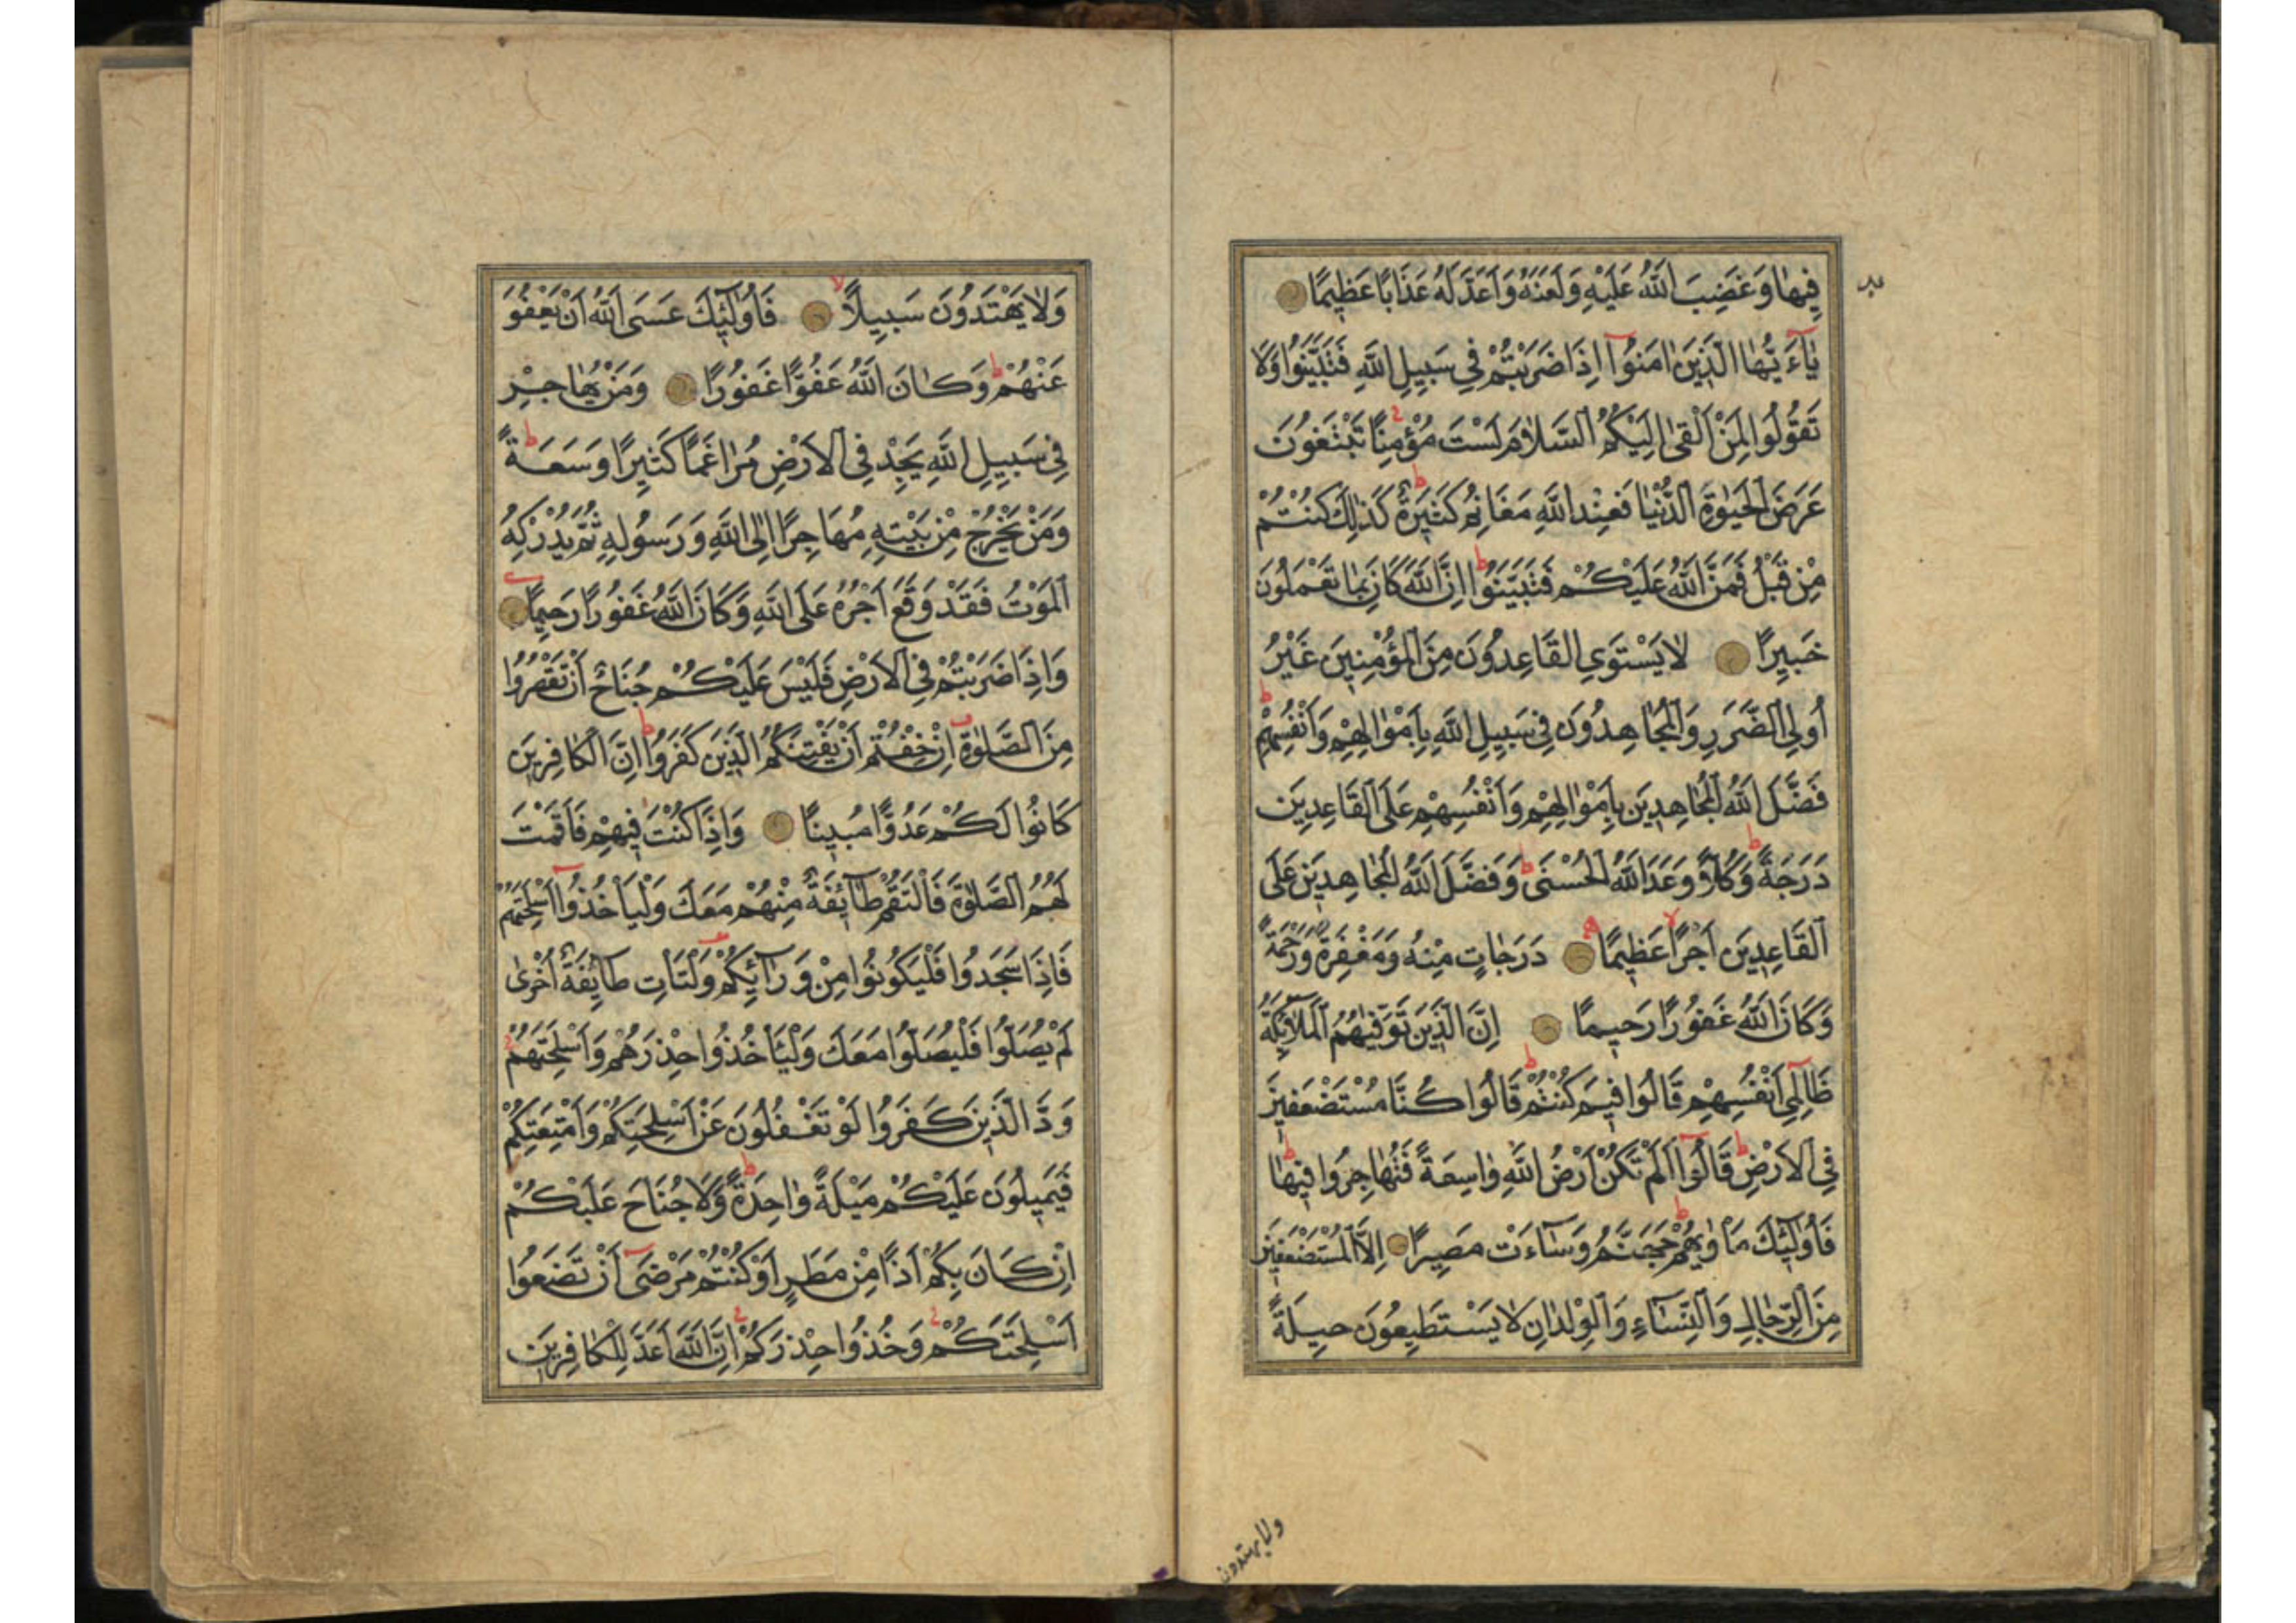 فِيهَا وَغَضِبَ اللَّهُ عَلَيْهِ وَلَعَنَهُ وَأَعَدَّ لَهُ عَذَابًا عَظِيمًا
يَاءَيُّهَا الَّذِينَ اٰمَنُوٓا اِذَا ضَرَبْتُمْ فِي سَبِيلِ اللَّهِ فَتَبَيَّنُوا وَلَا
تَقُولُوا لِمَنْ اَلْقٰى اِلَيْكُمُ السَّلَامَ لَسْتَ مُؤْمِنًا تَبْتَغُونَ
عَرَضَ الْحَيٰوةِ الدُّنْيَا فَعِنْدَ اللَّهِ مَغَانِمُ كَثِيرَةٌ كَذٰلِكَ كُنْتُمْ
مِنْ قَبْلُ فَمَنَّ اللَّهُ عَلَيْكُمْ فَتَبَيَّنُوا اِنَّ اللَّهَ كَانَ بِمَا تَعْمَلُونَ
خَبِيرًا لَا يَسْتَوِي الْقَاعِدُونَ مِنَ الْمُؤْمِنِينَ غَيْرُ
أُولِي الضَّرَرِ وَالْمُجَاهِدُونَ فِي سَبِيلِ اللَّهِ بِاَمْوَالِهِمْ وَاَنْفُسِهِمْ
فَضَّلَ اللَّهُ الْمُجَاهِدِينَ بِاَمْوَالِهِمْ وَاَنْفُسِهِمْ عَلَى الْقَاعِدِينَ
دَرَجَةً وَكُلًّا وَعَدَ اللَّهُ الْحُسْنٰى وَفَضَّلَ اللَّهُ الْمُجَاهِدِينَ عَلَى
الْقَاعِدِينَ اَجْرًا عَظِيمًا دَرَجَاتٍ مِنْهُ وَمَغْفِرَةً وَرَحْمَةً
وَكَانَ اللَّهُ غَفُورًا رَحِيمًا اِنَّ الَّذِينَ تَوَفّٰيهُمُ الْمَلٰٓئِكَةُ
ظَالِمِي اَنْفُسِهِمْ قَالُوا فِيمَ كُنْتُمْ قَالُوا كُنَّا مُسْتَضْعَفِينَ
فِي الْاَرْضِ قَالُوٓا اَلَمْ تَكُنْ اَرْضُ اللَّهِ وَاسِعَةً فَتُهَاجِرُوا فِيهَا
فَاُولٰٓئِكَ مَأْوٰيهُمْ جَهَنَّمُ وَسَاءَتْ مَصِيرًا اِلَّا الْمُسْتَضْعَفِينَ
مِنَ الرِّجَالِ وَالنِّسَاءِ وَالْوِلْدَانِ لَا يَسْتَطِيعُونَ حِيلَةً
ولا يهتدون
وَلَا يَهْتَدُونَ سَبِيلًا فَاُولٰٓئِكَ عَسَى اللَّهُ اَنْ يَعْفُوَ
عَنْهُمْ وَكَانَ اللَّهُ عَفُوًّا غَفُورًا وَمَنْ يُهَاجِرْ
فِي سَبِيلِ اللَّهِ يَجِدْ فِي الْاَرْضِ مُرَاغَمًا كَثِيرًا وَسَعَةً
وَمَنْ يَخْرُجْ مِنْ بَيْتِهِ مُهَاجِرًا اِلَى اللَّهِ وَرَسُولِهِ ثُمَّ يُدْرِكْهُ
الْمَوْتُ فَقَدْ وَقَعَ اَجْرُهُ عَلَى اللَّهِ وَكَانَ اللَّهُ غَفُورًا رَحِيمًا
وَاِذَا ضَرَبْتُمْ فِي الْاَرْضِ فَلَيْسَ عَلَيْكُمْ جُنَاحٌ اَنْ تَقْصُرُوا
مِنَ الصَّلٰوةِ اِنْ خِفْتُمْ اَنْ يَفْتِنَكُمُ الَّذِينَ كَفَرُوا اِنَّ الْكَافِرِينَ
كَانُوا لَكُمْ عَدُوًّا مُبِينًا وَاِذَا كُنْتَ فِيهِمْ فَاَقَمْتَ
لَهُمُ الصَّلٰوةَ فَلْتَقُمْ طَآئِفَةٌ مِنْهُمْ مَعَكَ وَلْيَأْخُذُوٓا اَسْلِحَتَهُمْ
فَاِذَا سَجَدُوا فَلْيَكُونُوا مِنْ وَرَآئِكُمْ وَلْتَأْتِ طَآئِفَةٌ اُخْرٰى
لَمْ يُصَلُّوا فَلْيُصَلُّوا مَعَكَ وَلْيَأْخُذُوا حِذْرَهُمْ وَاَسْلِحَتَهُمْ
وَدَّ الَّذِينَ كَفَرُوا لَوْ تَغْفُلُونَ عَنْ اَسْلِحَتِكُمْ وَاَمْتِعَتِكُمْ
فَيَمِيلُونَ عَلَيْكُمْ مَيْلَةً وَاحِدَةً وَلَا جُنَاحَ عَلَيْكُمْ
اِنْ كَانَ بِكُمْ اَذًى مِنْ مَطَرٍ اَوْ كُنْتُمْ مَرْضٰٓى اَنْ تَضَعُوا
اَسْلِحَتَكُمْ وَخُذُوا حِذْرَكُمْ اِنَّ اللَّهَ اَعَدَّ لِلْكَافِرِينَ